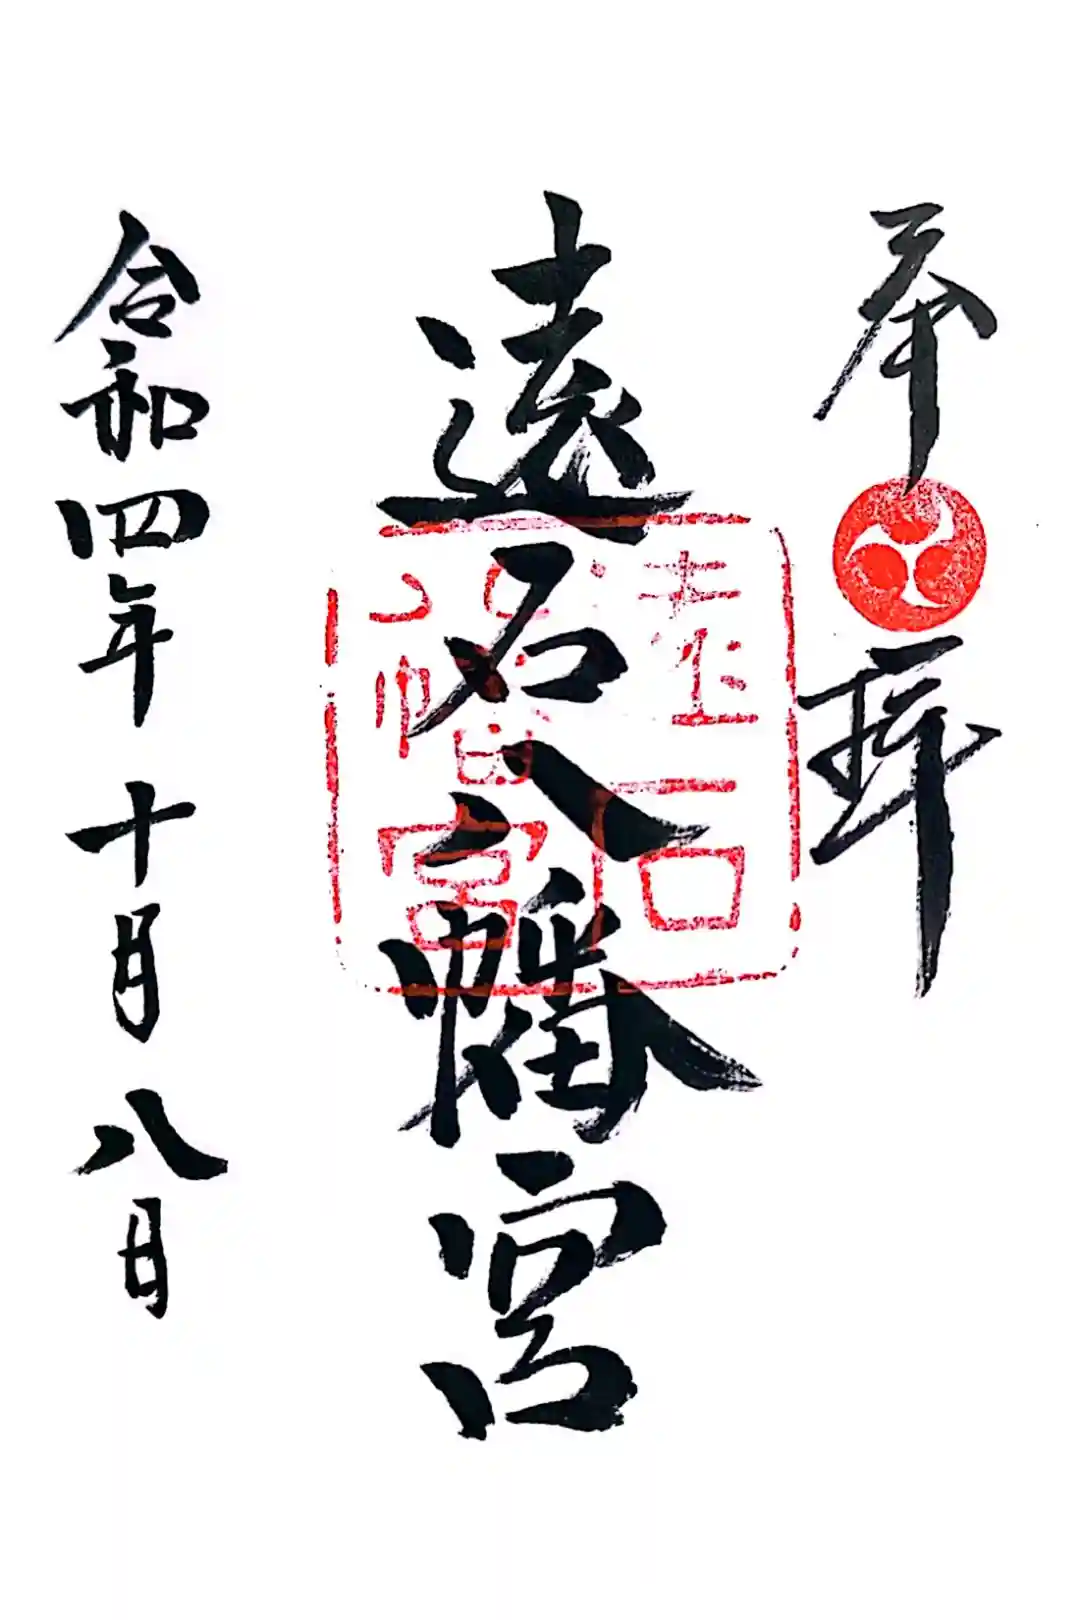 奉拝
遠石八幡宮
遠石
八幡宮
令和四年十月八日